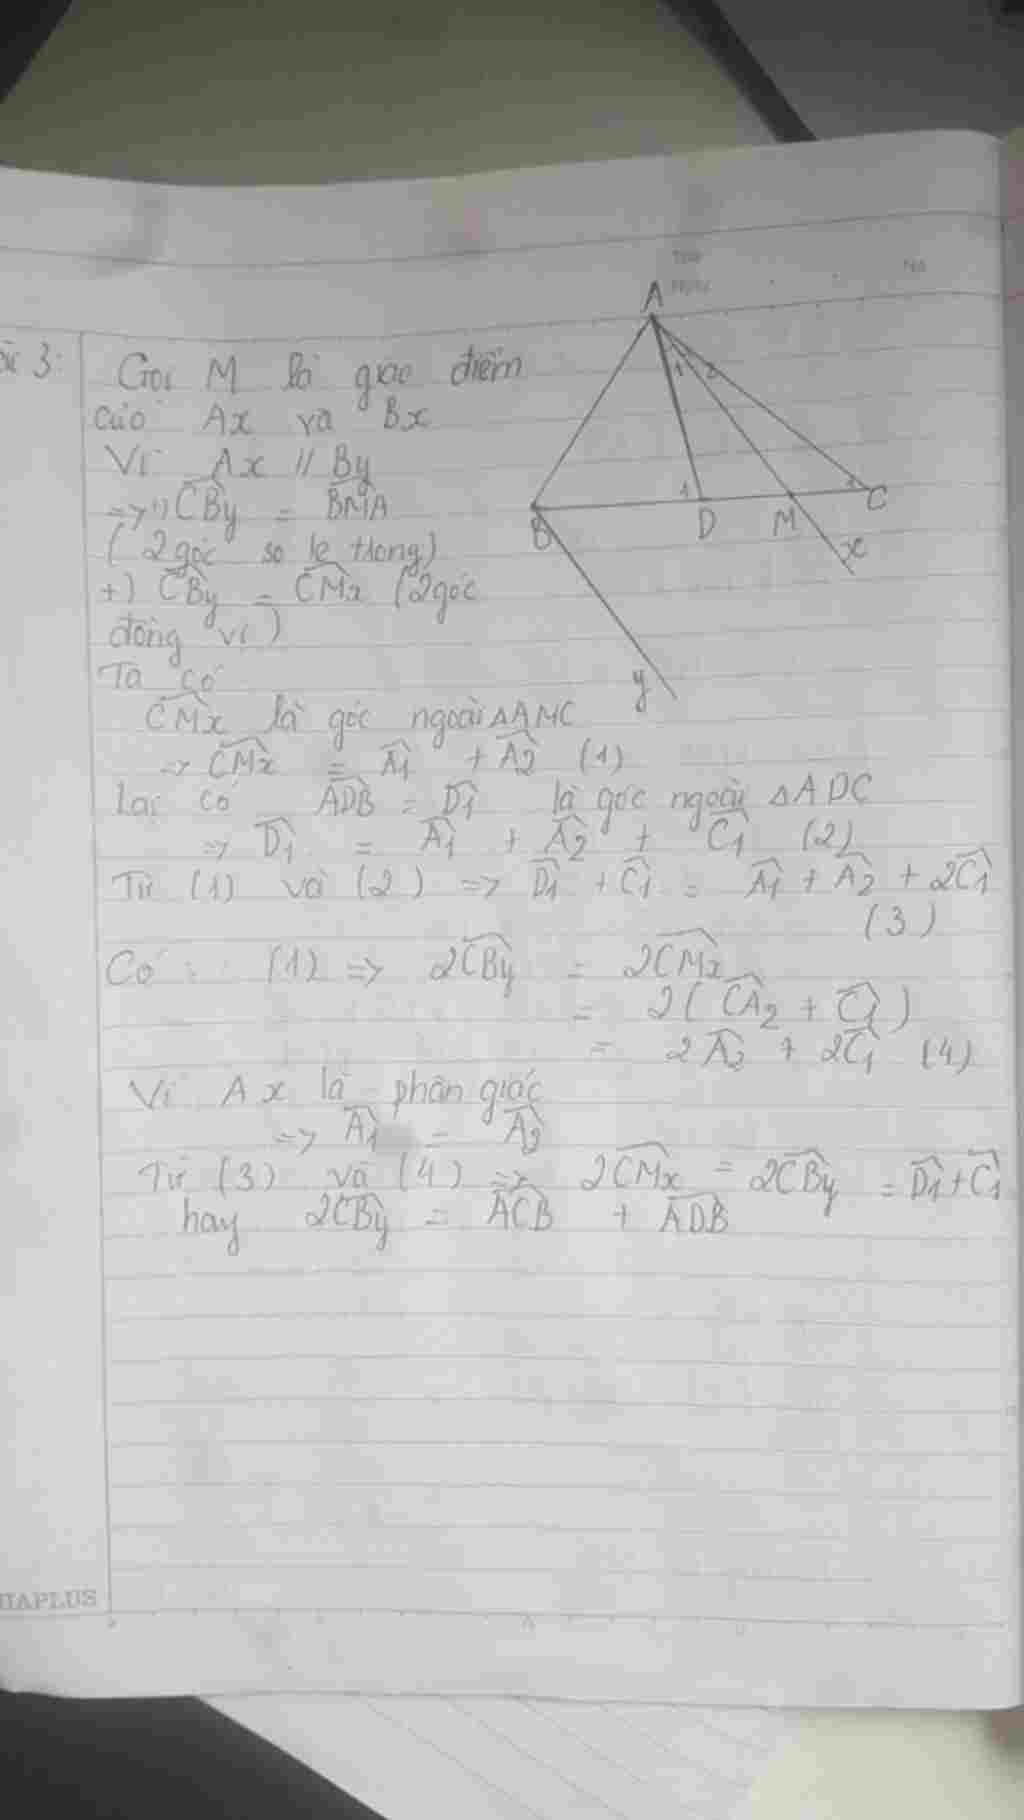 Bài 3:
Gọi M là giao điểm
của Ax và Bx
Vì Ax // By
=> +) CBy = BMA
(2 góc so le trong)
+) CBy = CMx (2 góc
đồng vị)
Ta có
CMx là góc ngoài ΔAMC
=> CMx = A1 + A2 (1)
Lại có ADB = D1 là góc ngoài ΔADC
=> D1 = A1 + A2 + C1 (2)
Từ (1) và (2) => D1 + C1 = A1 + A2 + 2C1
(3)
Có: (1) => 2CBy = 2CMx
= 2(CA2 + C1)
= 2A2 + 2C1 (4)
Vì Ax là phân giác
=> A1 = A2
Từ (3) và (4) => 2CMx = 2CBy = D1 + C1
hay 2CBy = ACB + ADB
A
1 2
1
1
B
D
M
C
x
y
No